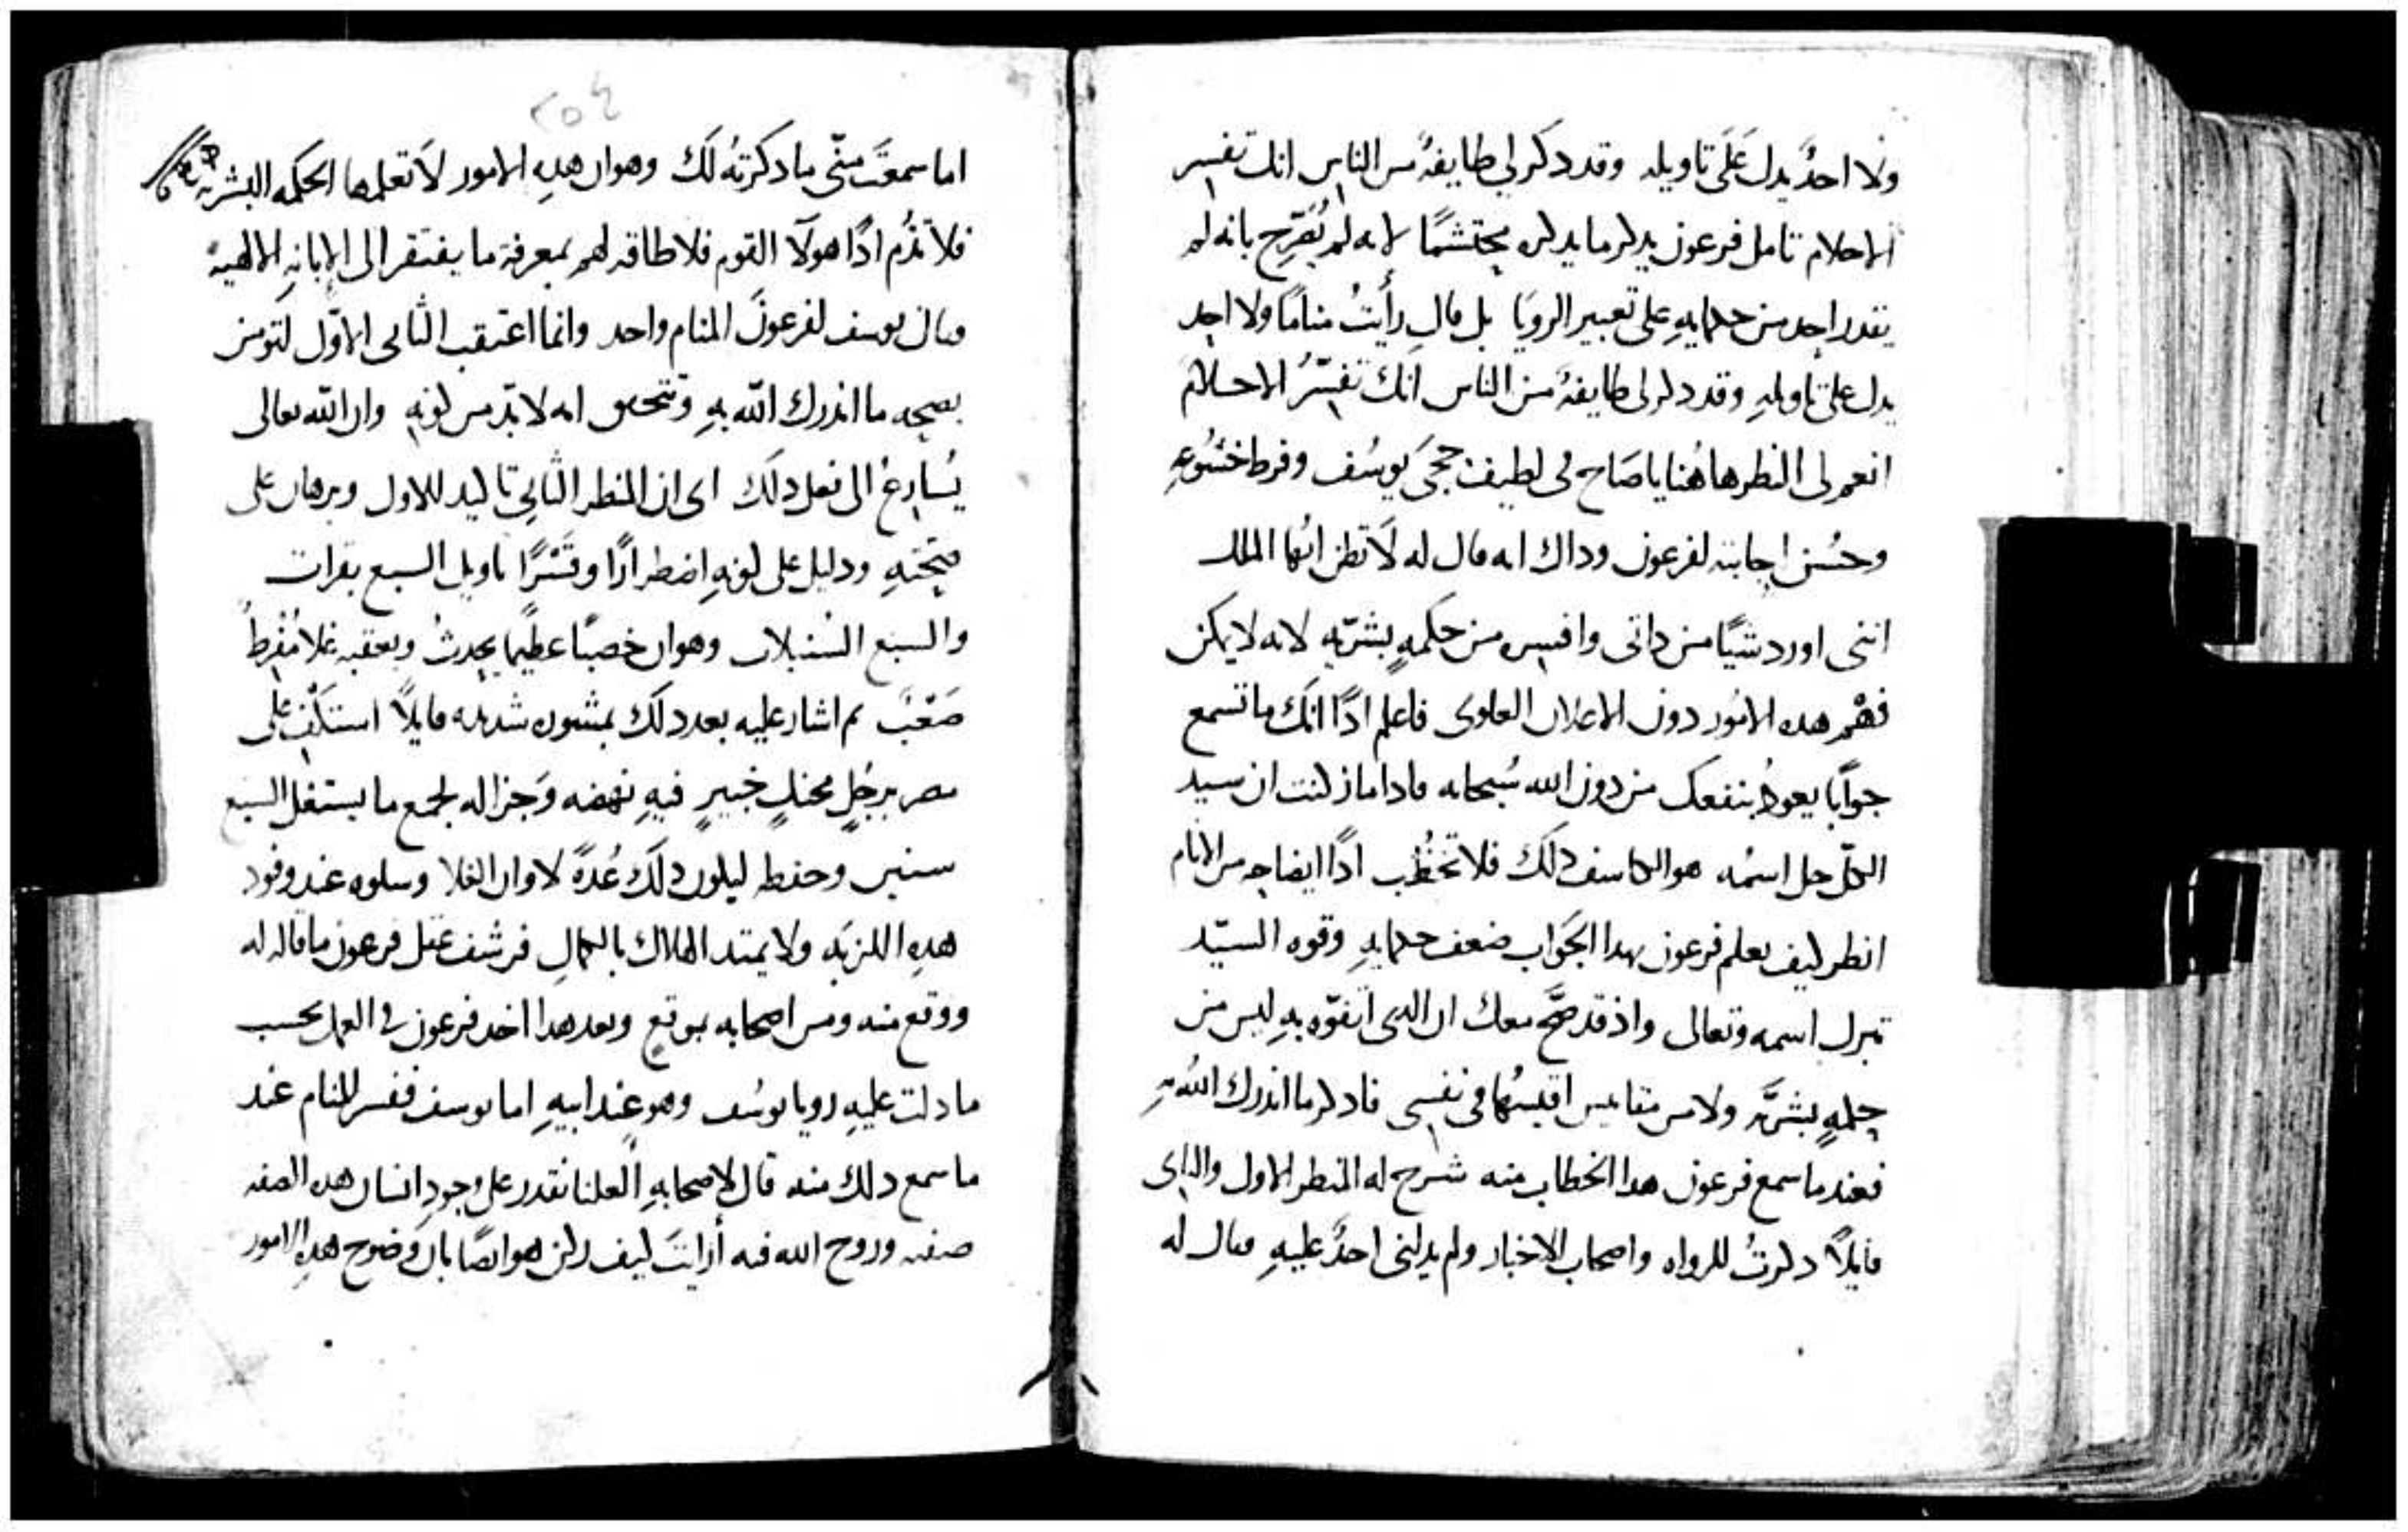 ولا احدٌ يدل عَلَى تاويله وقد ذكر لي طايفةٌ من الناس انك تفسر
الاحلام تامل فرعون يذكر ما يذكره محتشمًا لانه لم يُصَرِّح بانه لم
يقدر احد من حكمايهِ على تعبير الرويَا بل قال رأيتُ منامًا ولا احد
يدل على تاويلهِ وقد ذكر لي طايفةٌ من الناس انك تفسّرُ الاحلامَ
انعم لي النظر هاهُنا يا صَاحِ في لطيف حجى يوسُف وفرط خشوعهِ
وحُسْن اجابته لفرعون وذاك انه قال له لاَ تظن ايُّها الملك
انني اورد شيًا من ذاتي وافسره من حكمهٍ بشريّهٍ لانه لا يمكن
فهْم هذه الامُور دون الاعلان العلوى فاعلم اذًا انّك ما تسمع
جوابًا يعودُ بنفعك من دون الله سُبحانه فاذا ما زكنت ان سيد
الكلّ جل اسمُه هو الكاشف ذلك فلا تخطُب اذًا ايضاحه من الانام
انظر كيف يعلم فرعون بهذا الجَوَاب ضعف حكمايهِ وقوه السيّد
تبرك اسمه وتعالى واذ قد صَحَّ معك ان الذي اتفوّه بهِ ليس من
حكمهٍ بشريَّه ولا من مقاييس اقيسُها في نفسي فاذكر ما انذرك اللهُ بهِ
فعند ما سمع فرعون هذا الخطاب منه شرح له المنظر الاول والثاني
قايلاً ذكرتُ للرواه واصحاب الاخبار ولم يدلني احدٌ عليهِ فقال له
٢٥٤
اما سمعتَ منّي ما ذكرتهُ لَكَ وهو ان هذهِ الامور لاَ تعلمها الحكمه البشريه
فلا تذُم اذًا هولآ القوم فلا طاقه لهم بمعرفة ما يفتقر الى الابانهِ الالهيةَ
فقال يوسف لفرعونَ المنام واحد وانما اعتقب الثاني الاوّل لتومن
بصحه ما انذرك اللّه بهِ وتتحقق انه لا بدّ من كونهِ وان اللّه تعالى
يُسَارِعُ الى فعل ذلكَ اى ان المنظر الثاني تاكيد للاول وبرهان على
صحّتهِ ودليل على كونهِ اضطرارًا وقَسْرًا تاويل السبع بقرات
والسَبع السُنبلات وهو ان خصبًا عظيمًا يحدثُ ويعقبه غلا مُفْرِطُ
صَعْبٌ ثم اشار عليه بعد ذلكَ بمشوره شديده قايلاً استكفِ على
مصر برجُلٍ محنكٍ خبيرٍ فيهِ نهضه وَجزاله لجمع ما يستغل السبع
سنين وحفظه ليكون ذلكَ عُدةً لاوان الغلا وسلوه عند وفود
هذهِ اللزبَه ولا يمتد الهلاك بالكمالِ فرشف عقل فرعون ما قاله له
ووقع منه ومن اصحابه بموقعٍ وبعد هذا اخذ فرعون في العمل بحسب
ما دلت عليهِ رويا يوسُف وهو عند ابيهِ اما يوسف ففسر المنام عند
ما سمع ذلك منه قال لاصحابهِ العلنا نقدر على وجودِ انسان هذه الصفه
صفته وروح الله فيه أرايتَ كيف زكن هو ايضًا بان وَضوح هذهِ الامور